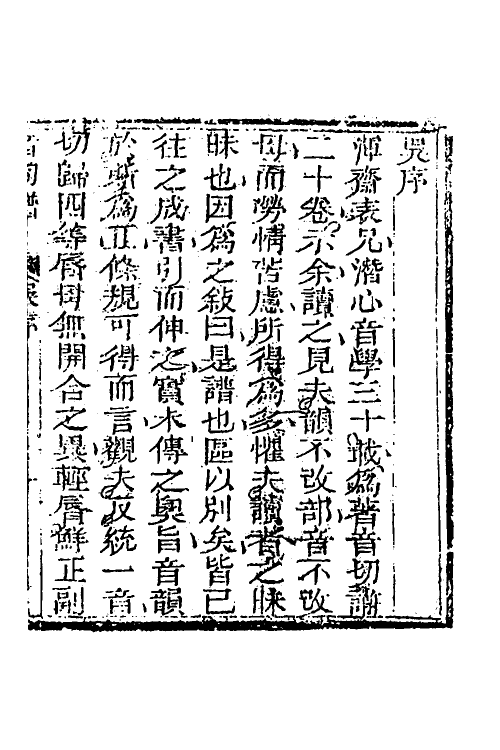 吳序
渾齋表兄潛心音學三十載爲著音切譜
二十卷示余讀之見夫韻不改部音不改
母而勞情苦慮所得爲多懼夫讀者之昧
昧也因爲之敘曰是譜也區以別矣皆已
往之成書引而伸之實未傳之奧旨音韻
於斯爲正條規可得而言觀夫反統一音
切歸四等唇母無開合之異輕唇鮮正副
音切譜
吳序